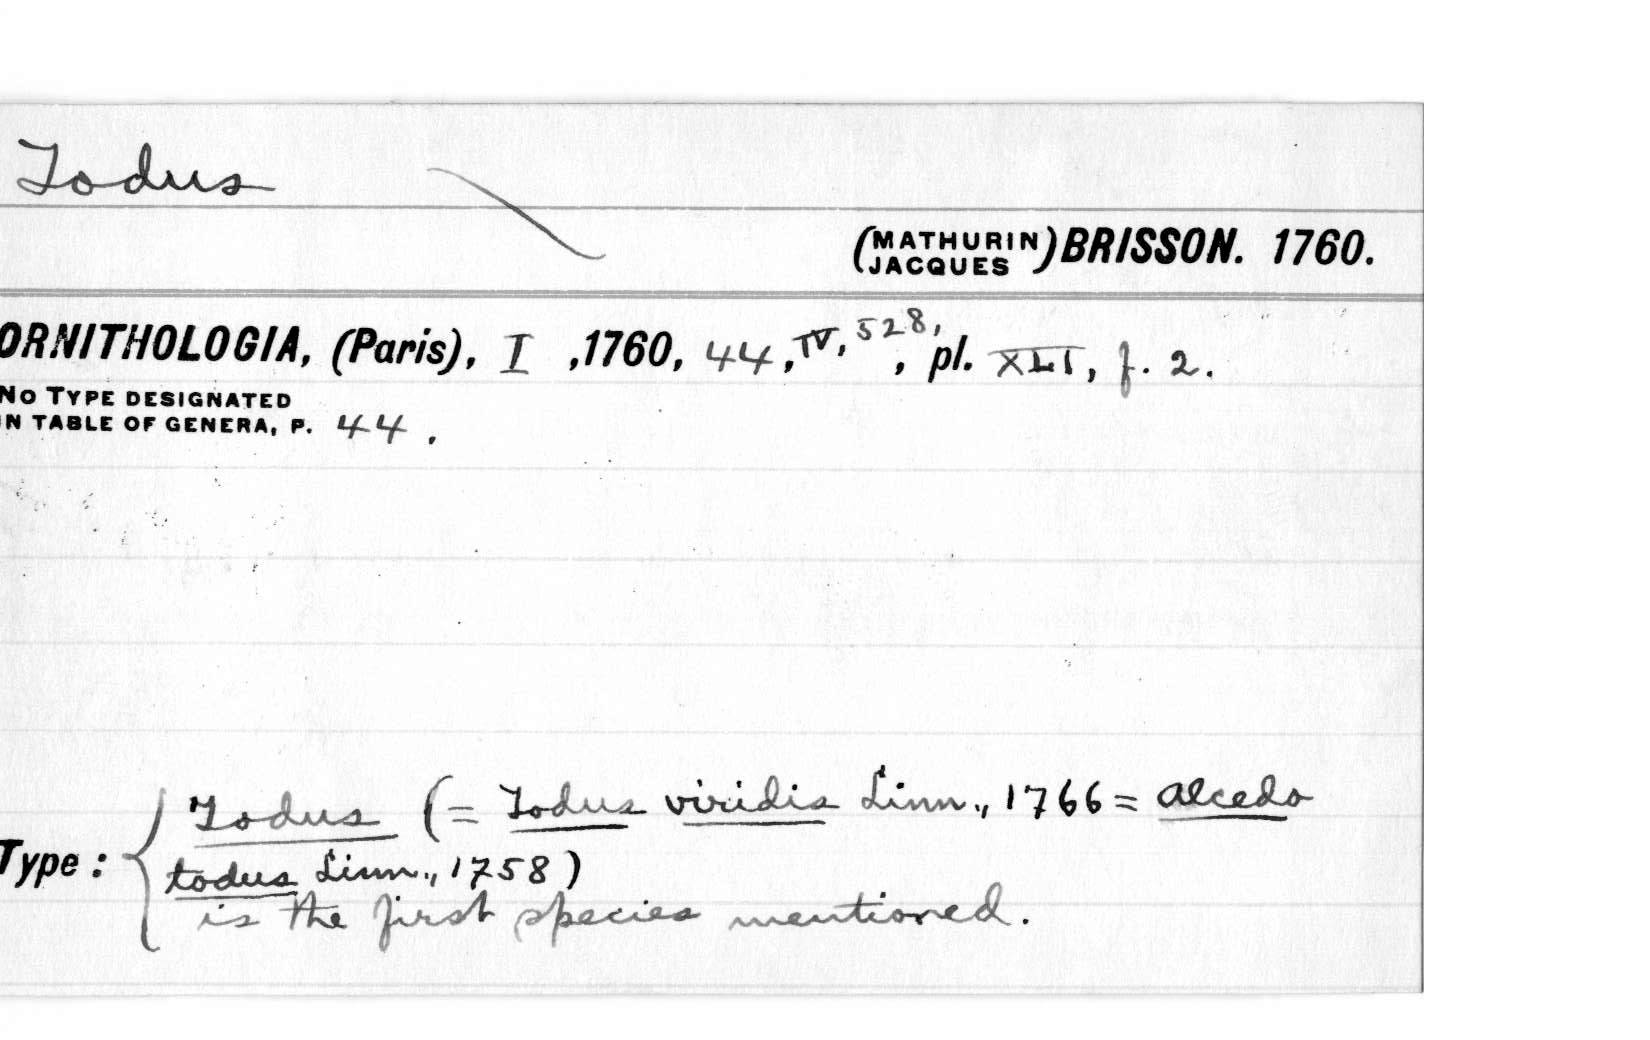 Todus
(MATHURIN JACQUES) BRISSON. 1760.
ORNITHOLOGIA, (Paris), I ,1760, 44, IV, 528, , pl. XLI, f. 2.
NO TYPE DESIGNATED
IN TABLE OF GENERA, P. 44 .
Todus (= Todus viridis Linn., 1766 = Alcedo
Type : todus Linn., 1758)
is the first species mentioned.